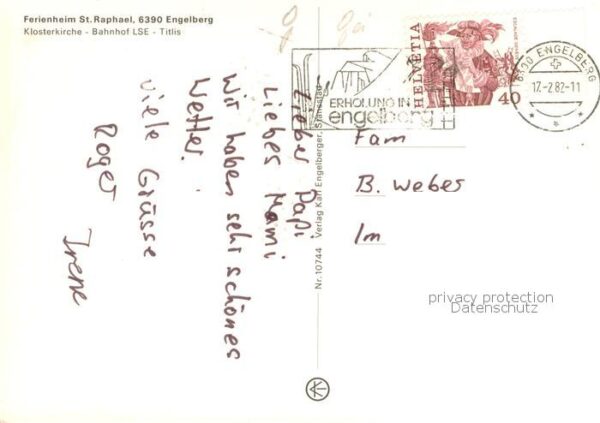 Ferienheim St. Raphael, 6390 Engelberg
Klosterkirche - Bahnhof LSE - Titlis
Lieber Papi
Liebes Mami
Wir haben sehr schönes
Wetter.
Viele Grüsse
Roger
Irene
Nr. 10744 Verlag Karl Engelberger, Stansstad
ERHOLUNG IN
engelberg
HELVETIA
40
6390 ENGELBERG
17-2.82-11
Fam
B. Weber
Im
privacy protection
Datenschutz